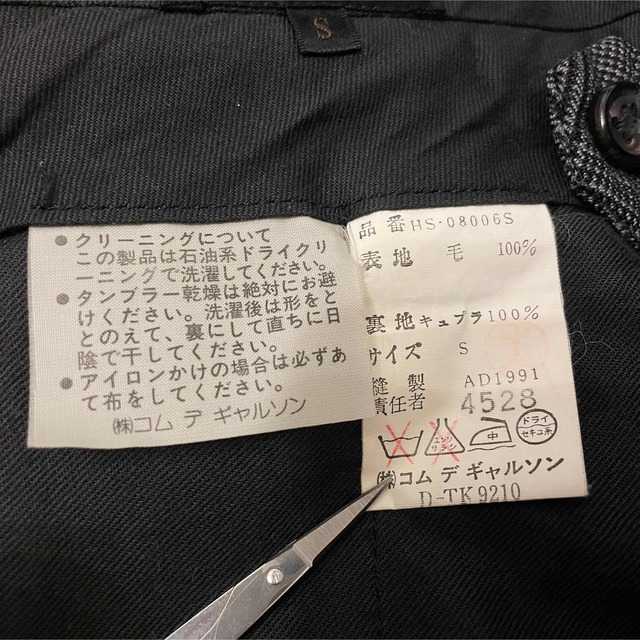 S
● クリーニングについて
この製品は石油系ドライクリ
ーニングで洗濯してください。
● タンブラー乾燥は絶対にお避
けください。洗濯後は形をと
とのえて、裏にして直ちに日
陰で干してください。
● アイロンかけの場合は必ずあ
て布をしてください。
㈱コム デ ギャルソン
品番 HS-08006S
表地 毛 100%
裏地 キュプラ 100%
サイズ S
縫製 AD1991
責任者 4528
エンソ
サラシ
中
ドライ
セキユ系
㈱コム デ ギャルソン
D-TK9210